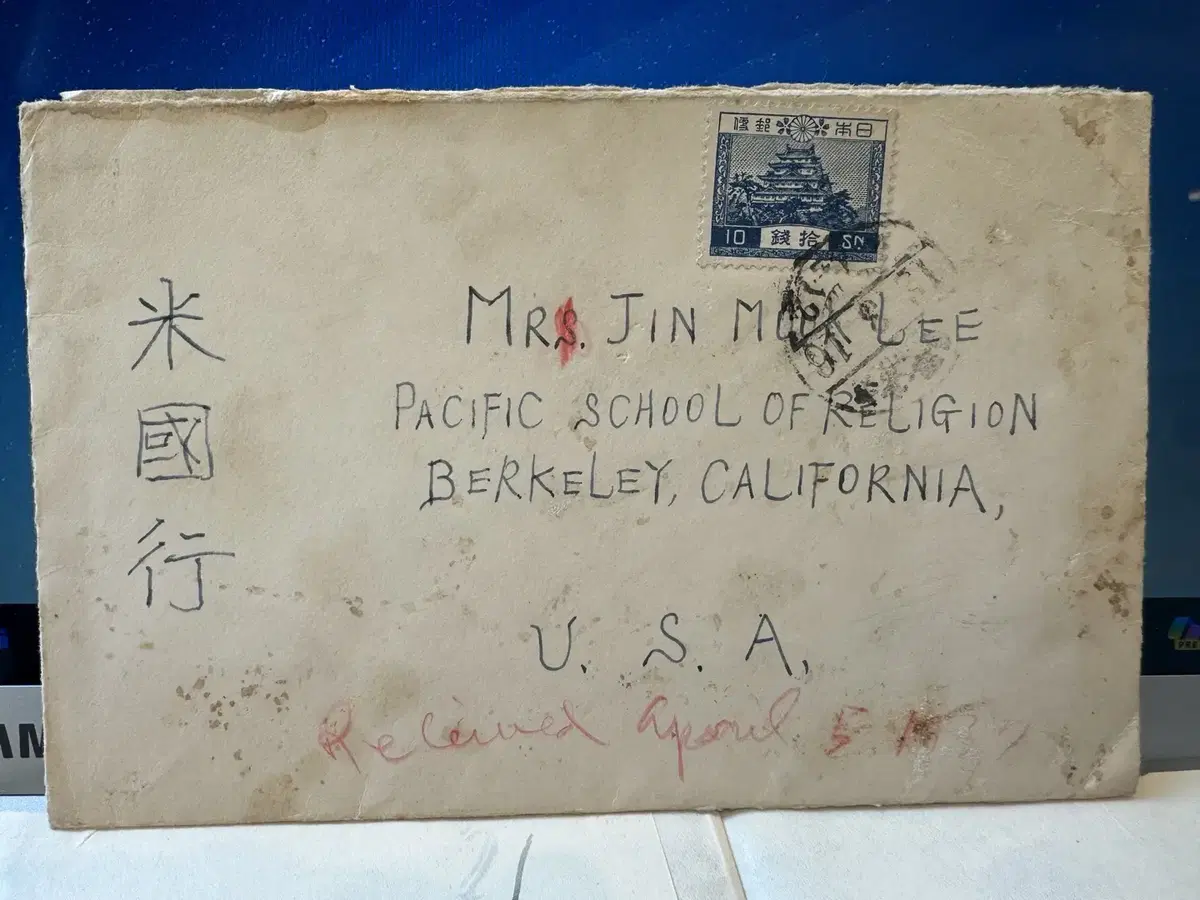 便郵 本日
10 錢拾 SN
MRS. JIN LEE
PACIFIC SCHOOL OF RELIGION
BERKELEY, CALIFORNIA,
U. S. A,
米國行
Received April 5